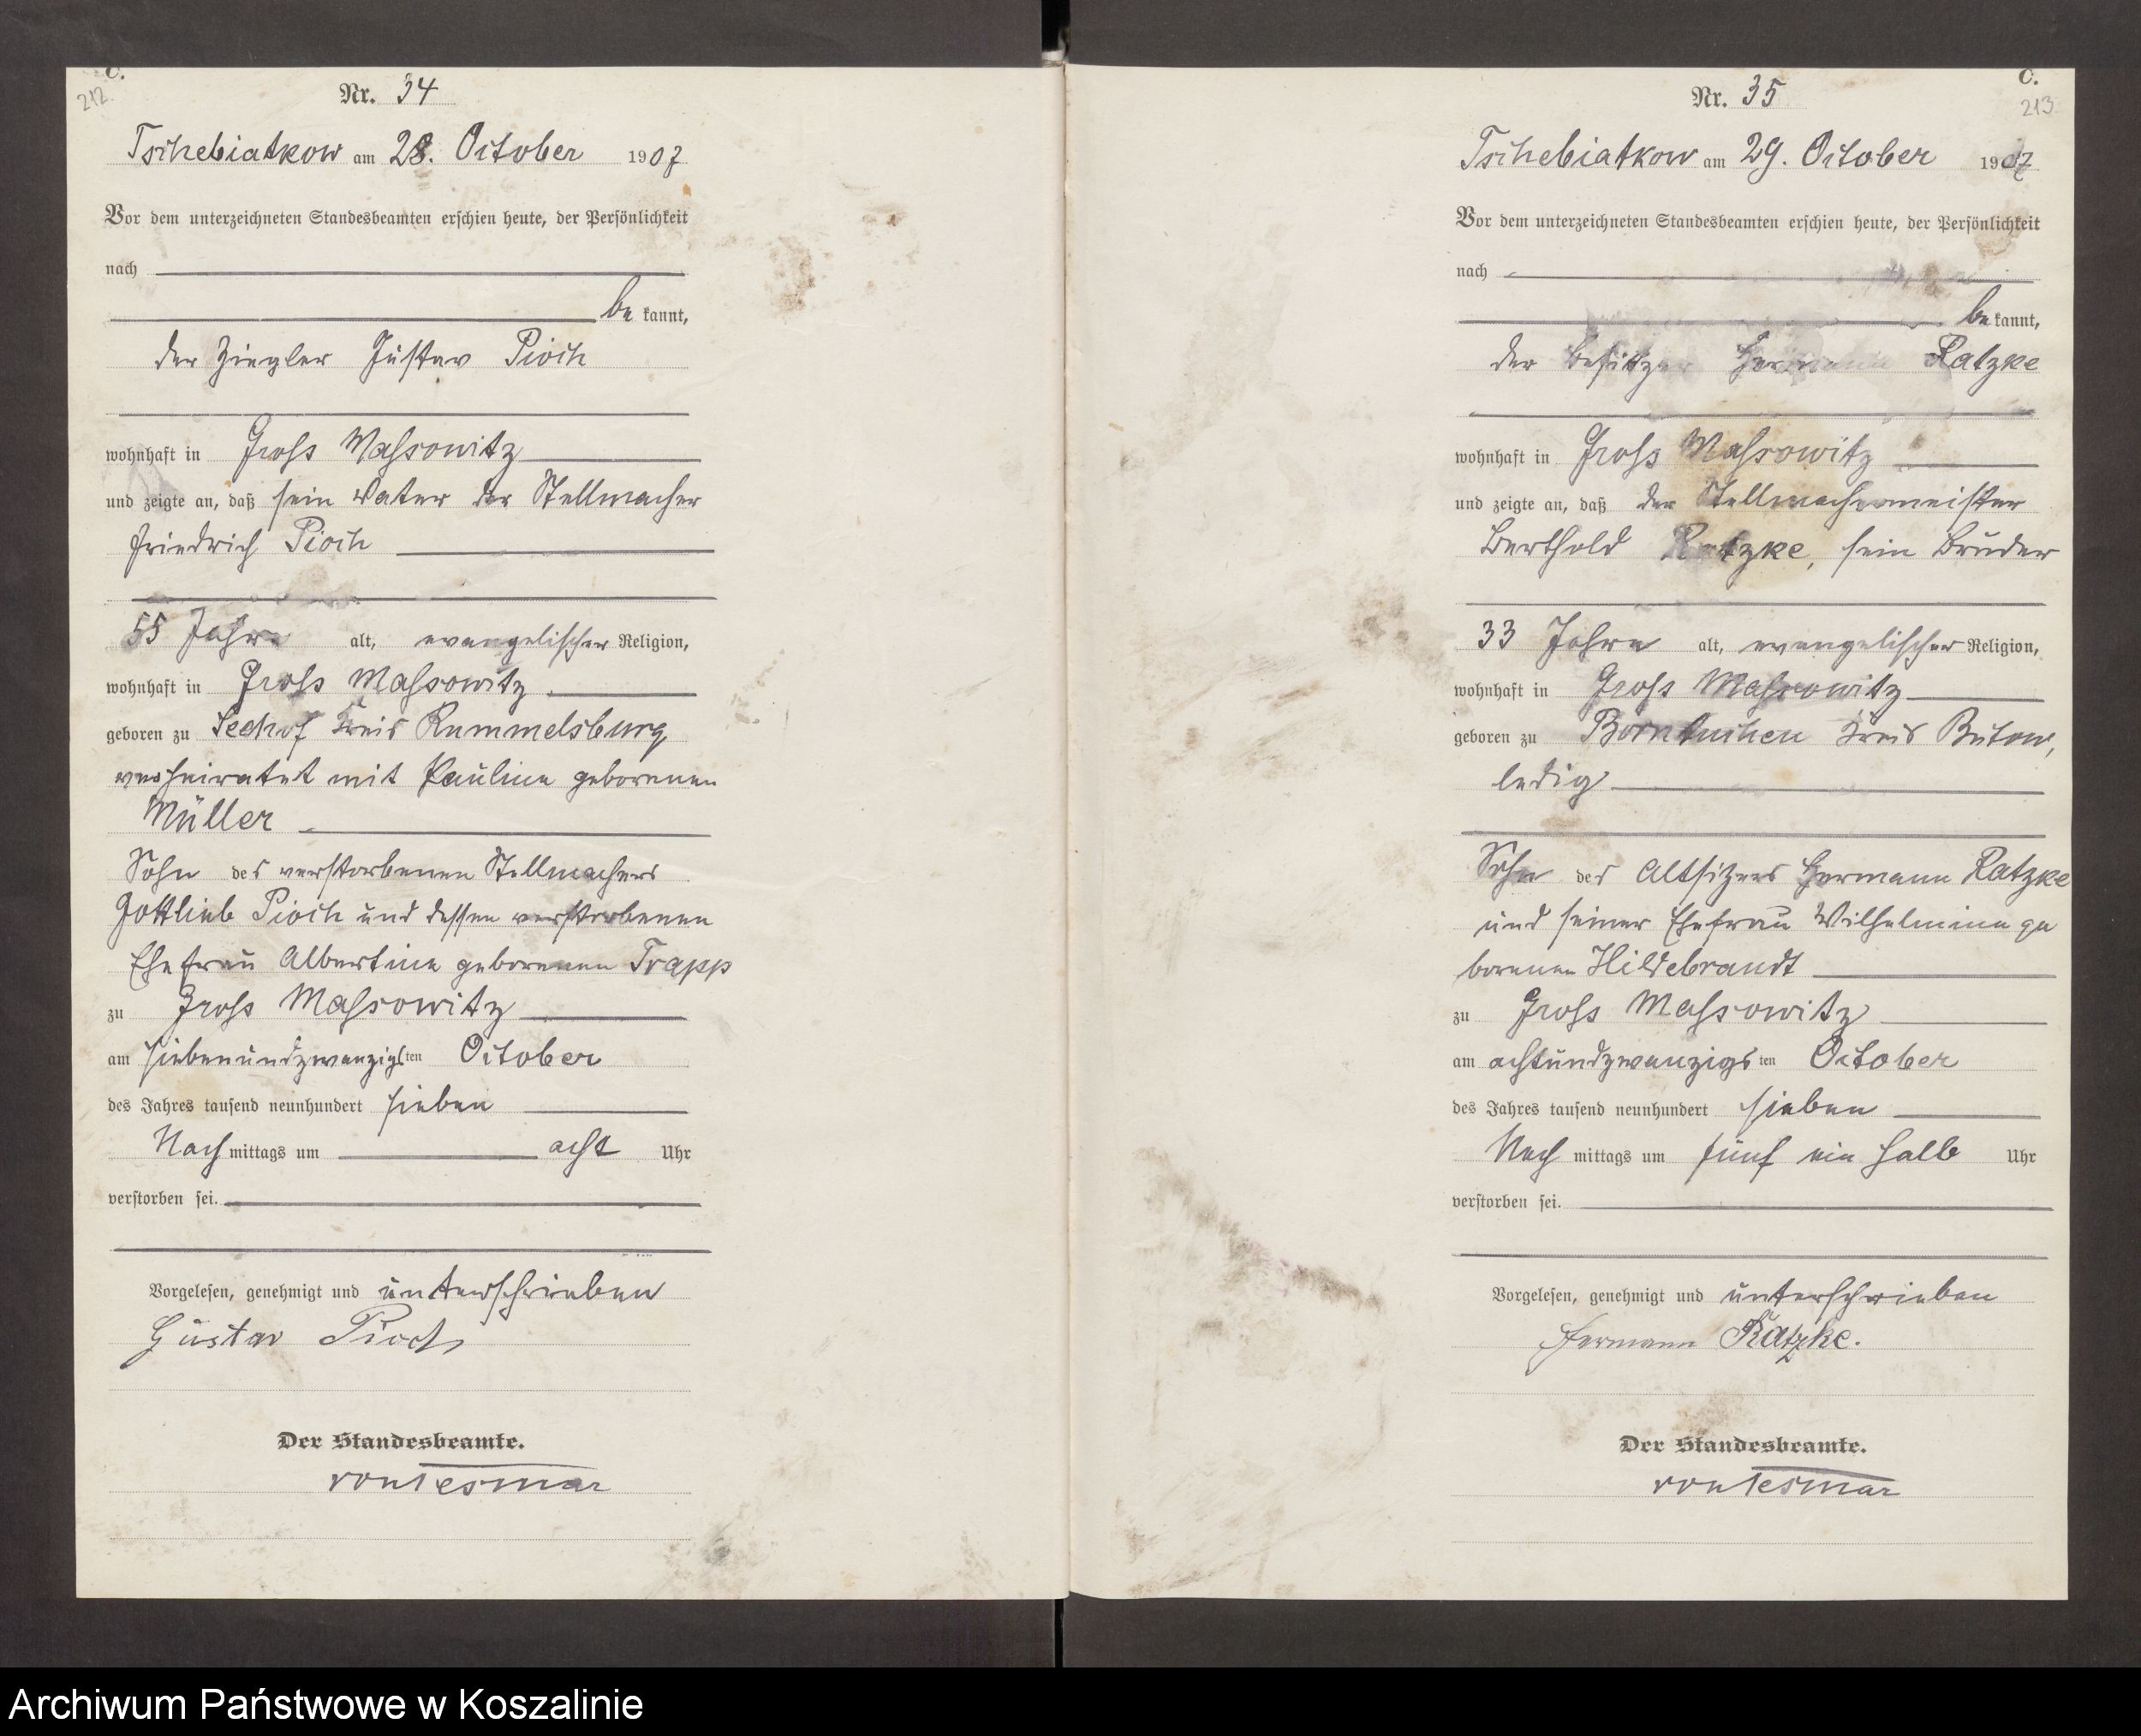 C.
212.
Nr. 34
Tschebiatkow am 28. October 1907
Vor dem unterzeichneten Standesbeamten erschien heute, der Persönlichkeit
nach
be kannt,
der Ziegler Gustav Pioch
wohnhaft in Gross Massowitz
und zeigte an, daß sein Vater der Stellmacher
Friedrich Pioch
55 Jahre alt, evangelischer Religion,
wohnhaft in Gross Massowitz
geboren zu Seehof Kreis Rummelsburg
verheiratet mit Pauline geborenen
Müller
Sohn des verstorbenen Stellmachers
Gottlieb Pioch und dessen verstorbenen
Ehefrau Albertine geborenen Trapp
zu Gross Massowitz
am siebenundzwanzigsten October
des Jahres tausend neunhundert sieben
Nach mittags um acht Uhr
verstorben sei.
Vorgelesen, genehmigt und unterschrieben
Gustav Pioch
Der Standesbeamte.
von Tesmar
C.
213
Nr. 35
Tschebiatkow am 29. October 1907
Vor dem unterzeichneten Standesbeamten erschien heute, der Persönlichkeit
nach
be kannt,
der Besitzer Hermann Ratzke
wohnhaft in Gross Massowitz
und zeigte an, daß der Stellmachermeister
Berthold Ratzke, sein Bruder
33 Jahre alt, evangelischer Religion,
wohnhaft in Gross Massowitz
geboren zu Borntuchen Kreis Bütow,
ledig
Sohn des Altsitzers Hermann Ratzke
und seiner Ehefrau Wilhelmine ge
borenen Hildebrandt
zu Gross Massowitz
am achtundzwanzigsten October
des Jahres tausend neunhundert sieben
Nach mittags um fünf ein halb Uhr
verstorben sei.
Vorgelesen, genehmigt und unterschrieben
Hermann Ratzke.
Der Standesbeamte.
von Tesmar
Archiwum Państwowe w Koszalinie